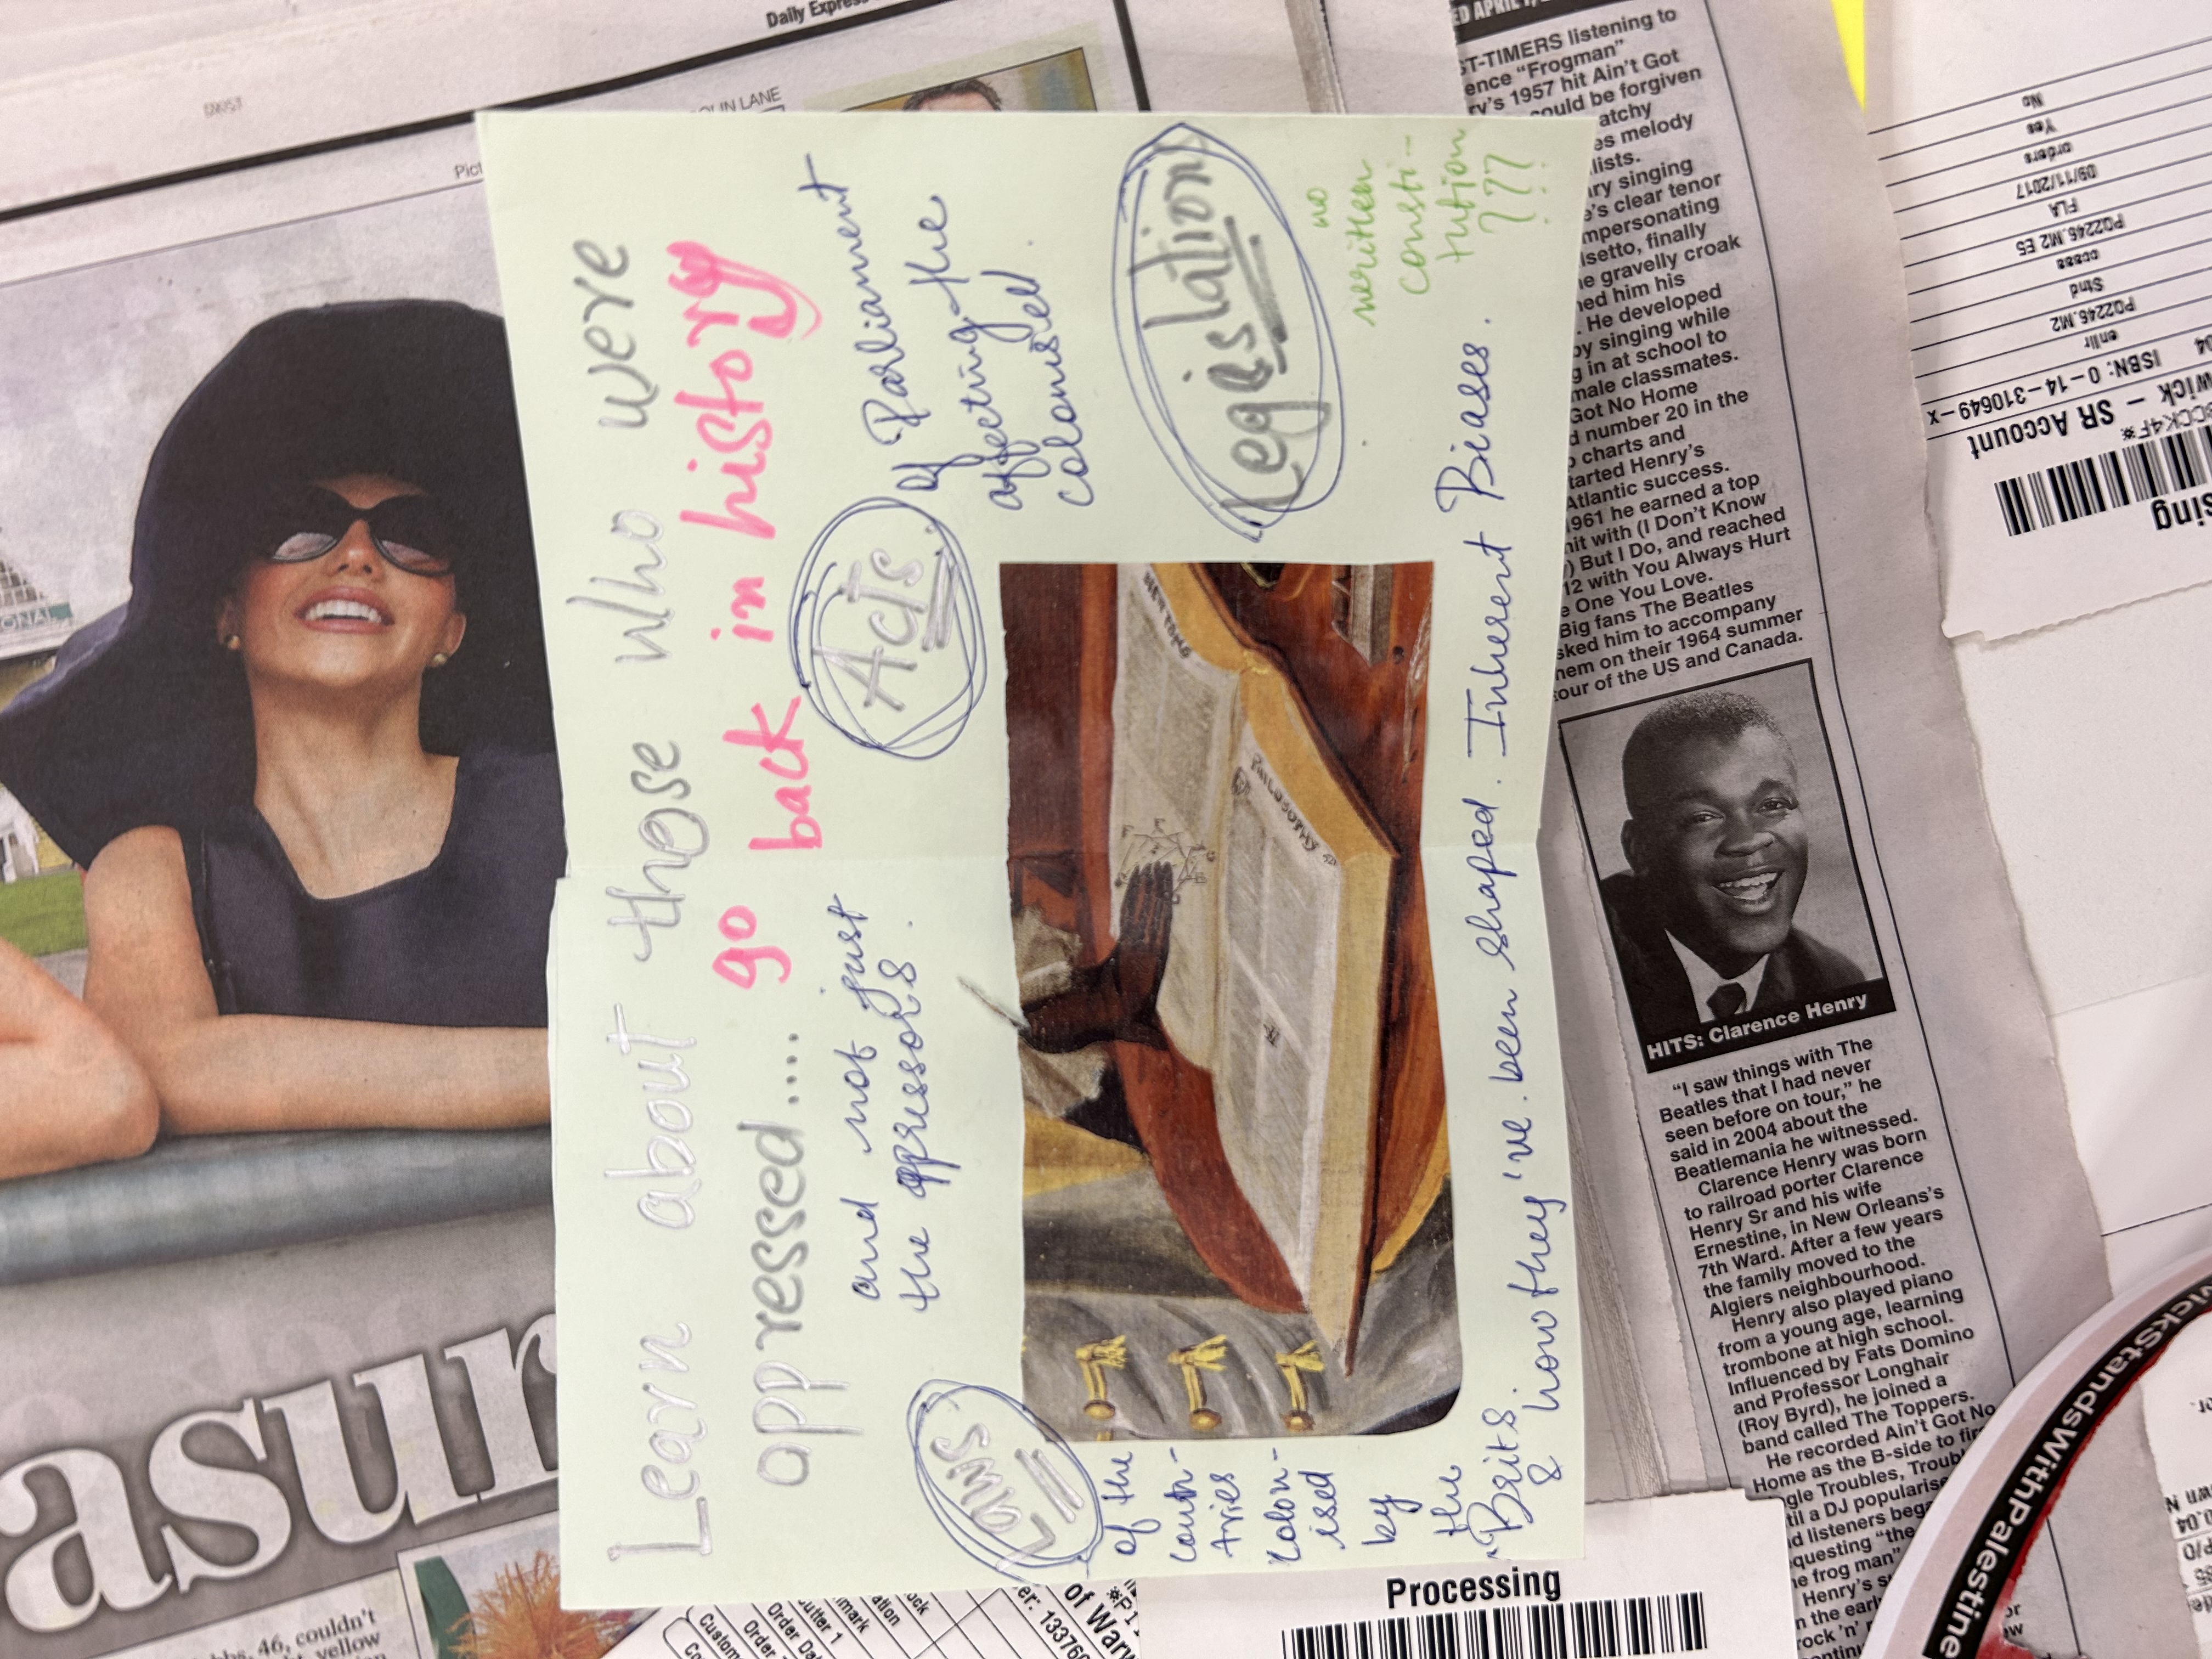 Learn about those who were
oppressed.... go back in history
and not just
the oppressors.
Acts
of Parliament
affecting the
colonised.
Laws
of the
coun-
tries
colon-
ised
by
the
Brits
& how they've been shaped. Inherent Biases.
Legislation
no
written
consti-
tution
???
PHILOSOPHY
Daily Express
asur
bbs, 46, couldn't
yellow
ST-TIMERS listening to
ence "Frogman"
ry's 1957 hit Ain't Got
could be forgiven
atchy
es melody
lists.
ry singing
e's clear tenor
mpersonating
setto, finally
e gravelly croak
ned him his
. He developed
by singing while
g in at school to
male classmates.
Got No Home
d number 20 in the
charts and
tarted Henry's
Atlantic success.
1961 he earned a top
hit with (I Don't Know
) But I Do, and reached
12 with You Always Hurt
e One You Love.
Big fans The Beatles
sked him to accompany
hem on their 1964 summer
our of the US and Canada.
HITS: Clarence Henry
"I saw things with The
Beatles that I had never
seen before on tour," he
said in 2004 about the
Beatlemania he witnessed.
Clarence Henry was born
to railroad porter Clarence
Henry Sr and his wife
Ernestine, in New Orleans's
7th Ward. After a few years
the family moved to the
Algiers neighbourhood.
Henry also played piano
from a young age, learning
trombone at high school.
Influenced by Fats Domino
and Professor Longhair
(Roy Byrd), he joined a
band called The Toppers.
He recorded Ain't Got No
Home as the B-side to
Troubles,
til a DJ popularise
d listeners bega
questing "the
e frog man"
Henry's
n the earl
rock 'n'
Processing
of Warw
Order
wick - SR Account
ISBN: 0-14-310649-x
P02246.M2
Stnd
P02246.M2 E5
FLA
09/11/2017
orders
Yes
No
wickStandsWithPalestine